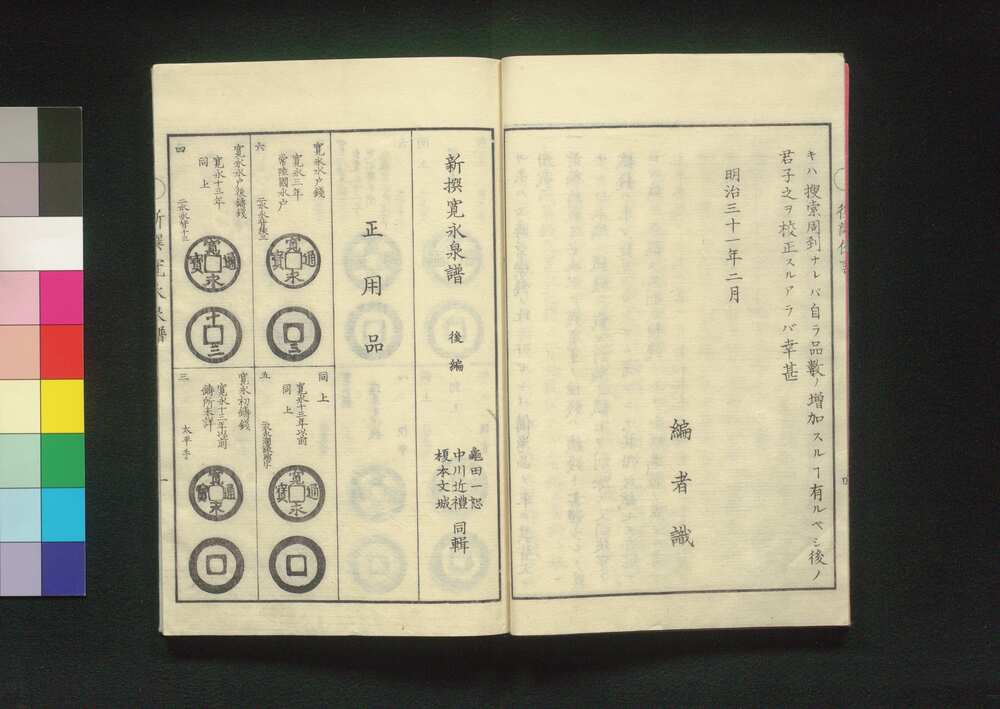 キハ搜索周到ナレバ自ラ品數ノ增加スルヿ有ルベシ後ノ
君子之ヲ校正スルアラバ幸甚
明治三十一年二月
編者識
新撰寛永泉譜
後編
龜田一恕
中川近禮
榎本文城
同輯
正用品
寛永水戸錢
寛永三年
常陸國水戸
六
二水永背三
同上
寛永十三年以前
同上
五
寛永水戸後鑄錢
寛永十三年
同上
四
二水永背十三
寛永初鑄錢
寛永十三年以前
鑄所未詳
三
太平手
寛永通寳
三
寛永通寳
寛永通寳
十三
寛永通寳
新撰寛永泉譜
一